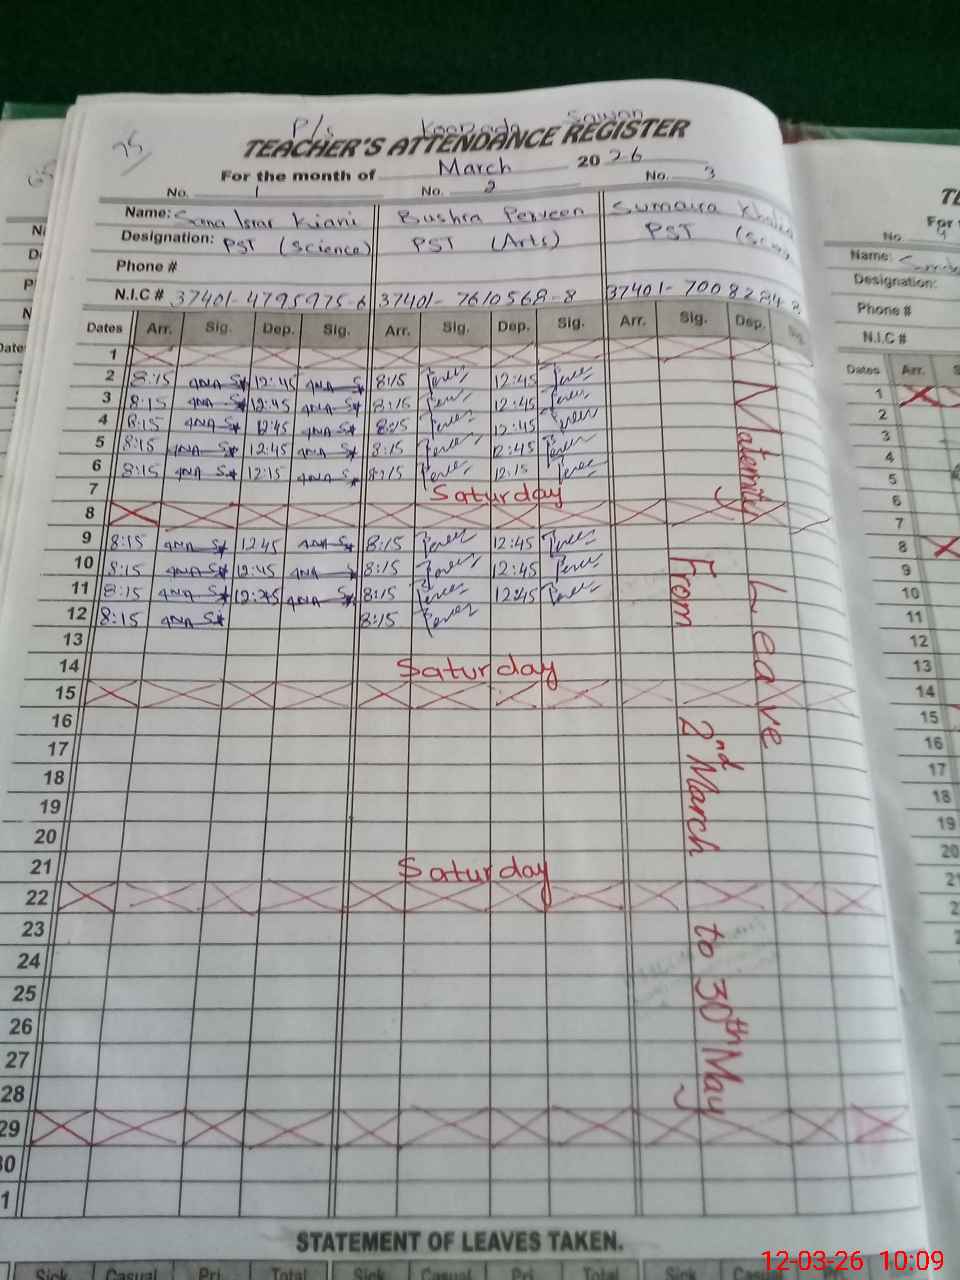 75
P/s Sawan
TEACHER'S ATTENDANCE REGISTER
For the month of March 2026
No. 1 No. 2 No. 3
Name: Sana Israr Kiani Bushra Perveen Sumaira
Designation: PST (Science) PST (Arts) PST
Phone #
N.I.C # 37401-4795975-6 37401-7610568-8 37401-7008284-8
Dates Arr. Sig. Dep. Sig. Arr. Sig. Dep. Sig. Arr. Sig. Dep. Sig.
1
2 8:15 12:45 8:15 12:45
3 8:15 12:45 8:15 12:45
4 8:15 12:45 8:15 12:45
5 8:15 12:45 8:15 12:45
6 8:15 12:15 8:15 12:15
7 Saturday
8
9 8:15 12:45 8:15 12:45
10 8:15 12:45 8:15 12:45
11 8:15 12:45 8:15 12:45
12 8:15 8:15
13
14 Saturday
15
16
17
18
19
20
21 Saturday
22
23
24
25
26
27
28
29
30
1
Maternity Leave
From 2nd March to 30th May
STATEMENT OF LEAVES TAKEN.
Sick Casual Pri. Total Sick Casual Pri. Total Sick Casual
No. 4
Name:
Designation:
Phone #
N.I.C #
Dates Arr.
1
2
3
4
5
6
7
8
9
10
11
12
13
14
15
16
17
18
19
20
21
12-03-26 10:09